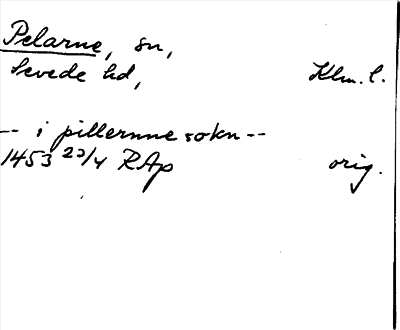 Pelarne, sn,
Sevede hd, Klm. l.
-- i pillernne sokn --
1453 23/4 RAp orig.